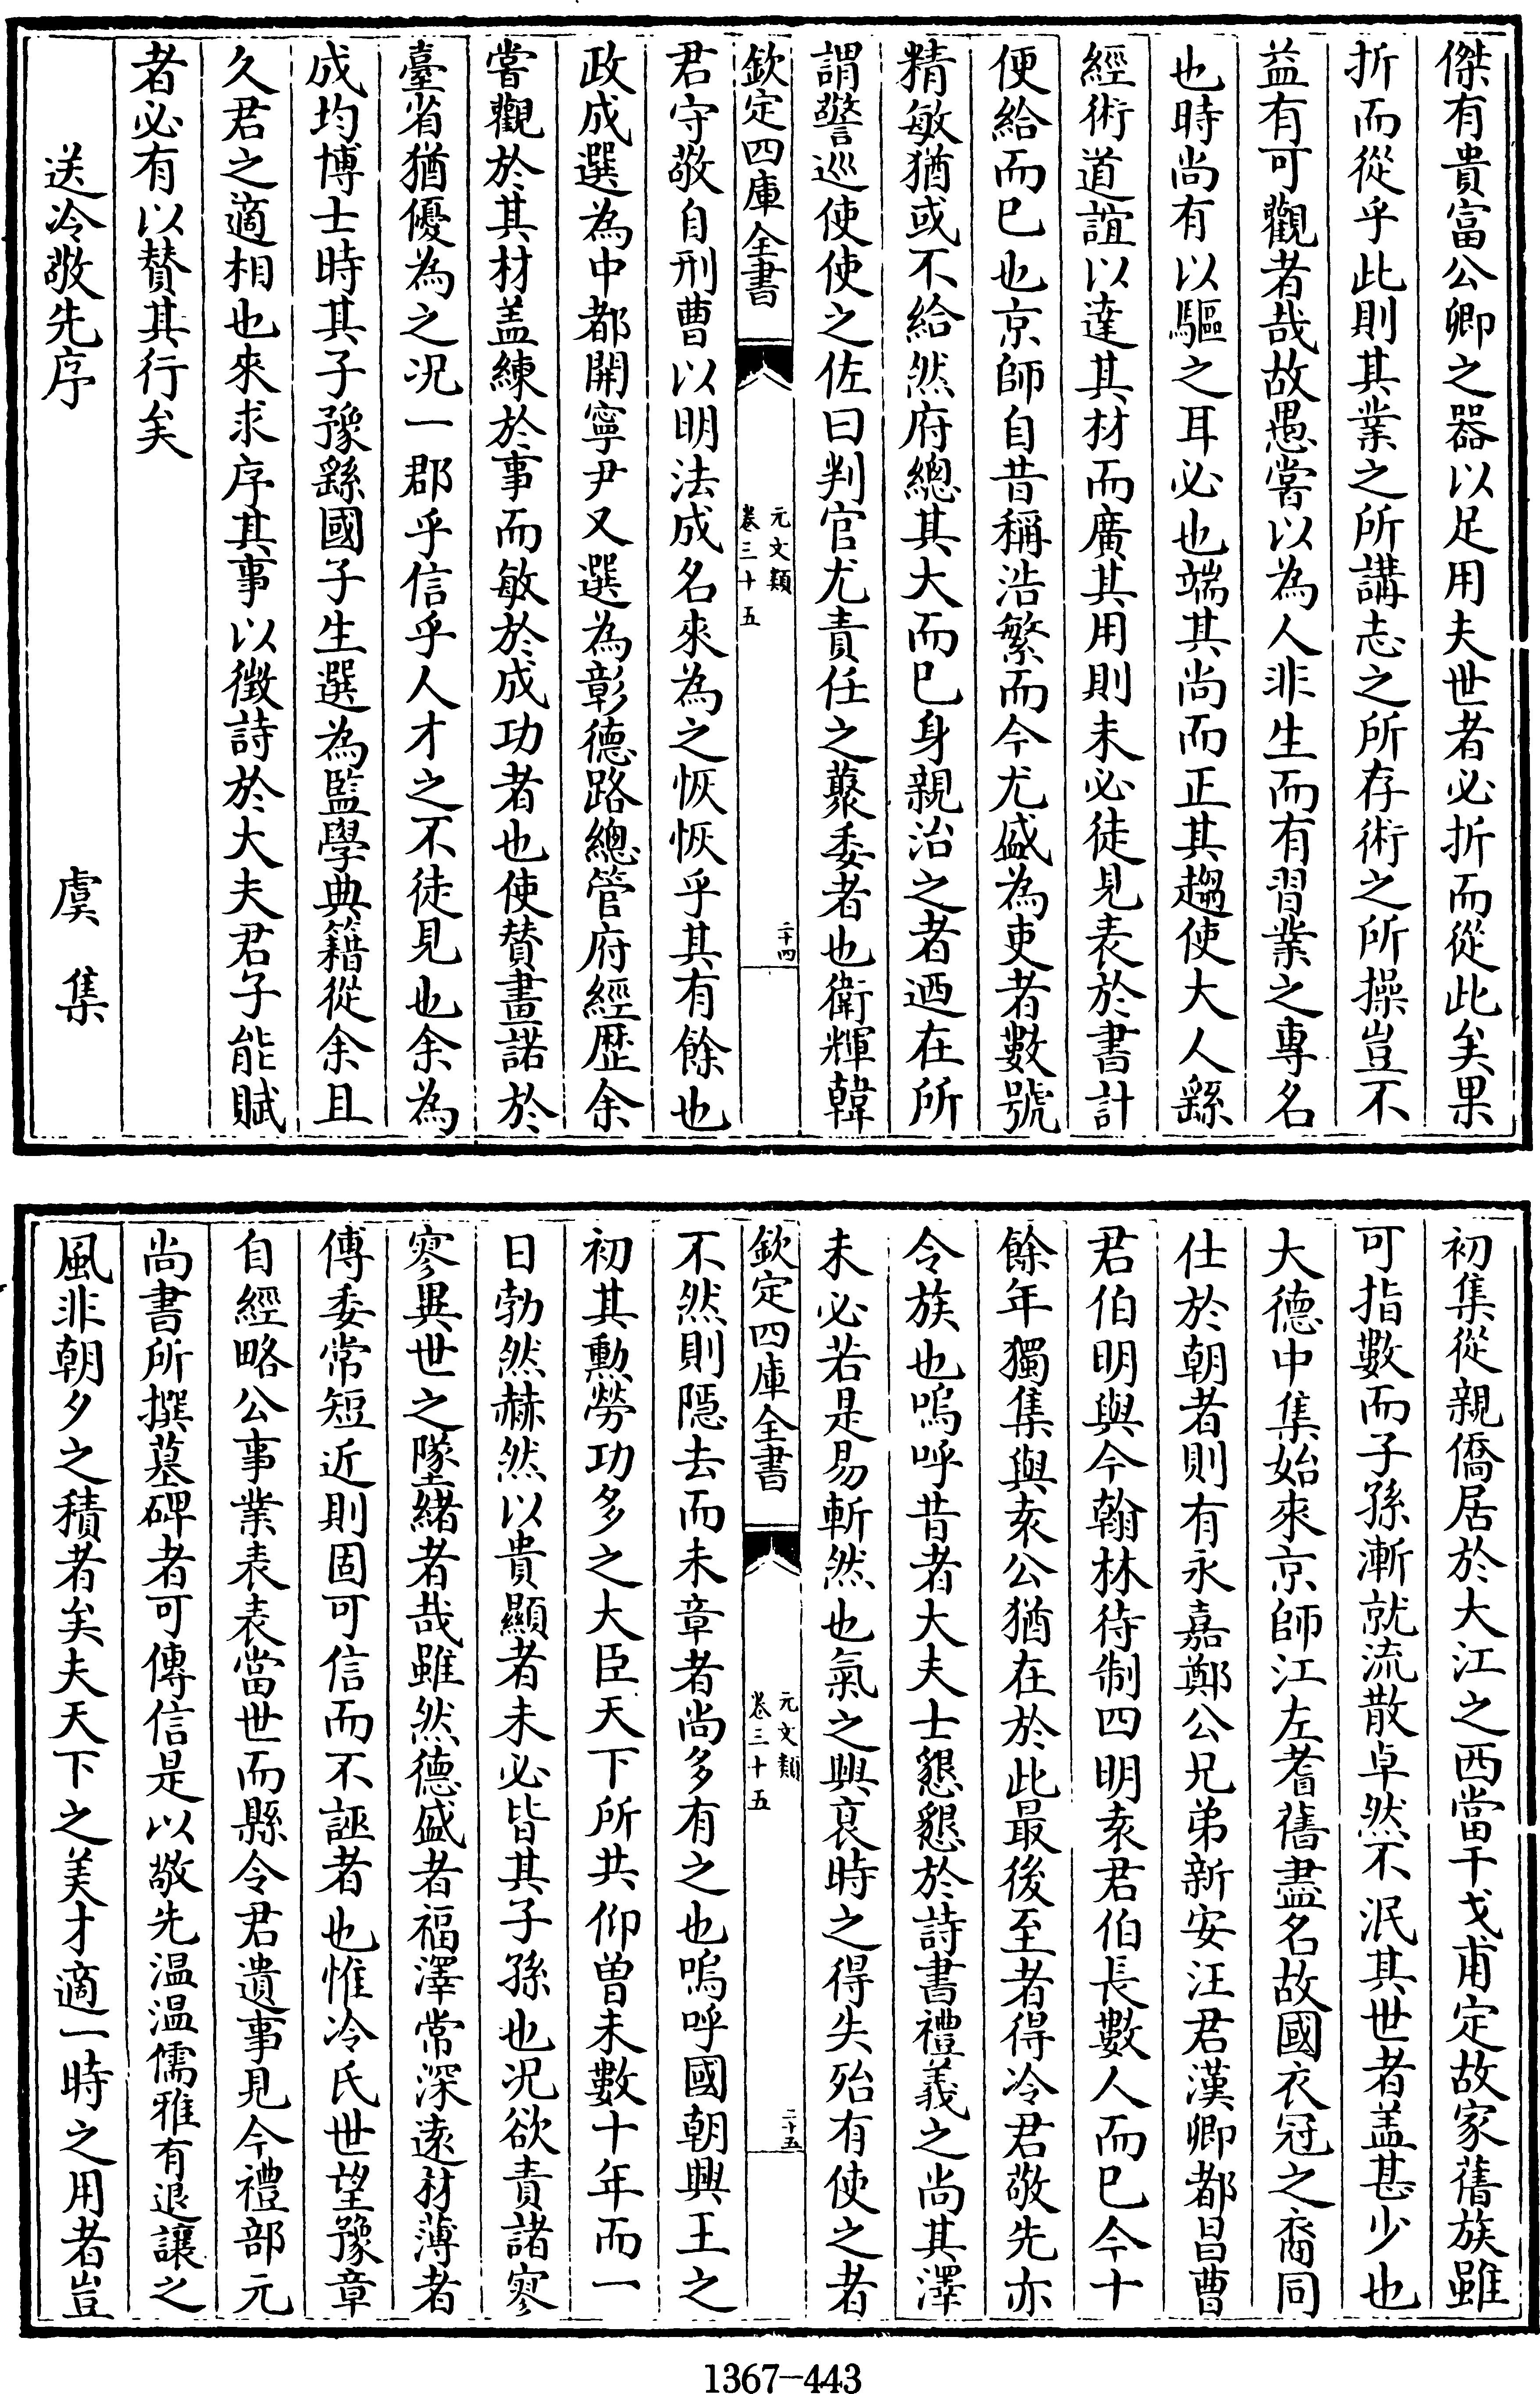 傑有貴富公卿之器以足用夫世者必折而從此矣果
折而從乎此則其業之所講志之所存術之所操豈不
益有可觀者哉故愚嘗以為人非生而有習業之專名
也時尚有以驅之耳必也端其尚而正其趨使大人繇
經術道誼以達其材而廣其用則未必徒見表於書計
便給而已也京師自昔稱浩繁而今尤盛為吏者數號
精敏猶或不給然府總其大而已身親治之者迺在所
謂警巡使使之佐曰判官尤責任之藂委者也衛輝韓
欽定四庫全書
元文類
卷三十五
二十四
君守敬自刑曹以明法成名來為之恢恢乎其有餘也
政成選為中都開寧尹又選為彰德路總管府經歷余
嘗觀於其材盖練於事而敏於成功者也使賛畫諾於
臺省猶優為之况一郡乎信乎人才之不徒見也余為
成均博士時其子豫繇國子生選為監學典籍從余且
久君之適相也來求序其事以徵詩於大夫君子能賦
者必有以賛其行矣
送冷敬先序
虞集
初集從親僑居於大江之西當干戈甫定故家舊族雖
可指數而子孫漸就流散卓然不泯其世者盖甚少也
大德中集始來京師江左耆舊盡名故國衣冠之裔同
仕於朝者則有永嘉鄭公兄弟新安汪君漢卿都昌曹
君伯明與今翰林待制四明袁君伯長數人而已今十
餘年獨集與袁公猶在於此最後至者得冷君敬先亦
令族也嗚呼昔者大夫士懇懇於詩書禮義之尚其澤
未必若是易斬然也氣之興衰時之得失殆有使之者
欽定四庫全書
元文類
卷三十五
二十五
不然則隱去而未章者尚多有之也嗚呼國朝興王之
初其勲勞功多之大臣天下所共仰曽未數十年而一
日勃然赫然以貴顯者未必皆其子孫也况欲責諸寥
寥異世之墜緒者哉雖然德盛者福澤常深遠材薄者
傳委常短近則固可信而不誣者也惟冷氏世望豫章
自經略公事業表表當世而縣令君遺事見今禮部元
尚書所撰墓碑者可傳信是以敬先温温儒雅有退讓之
風非朝夕之積者矣夫天下之美才適一時之用者豈
1367-443